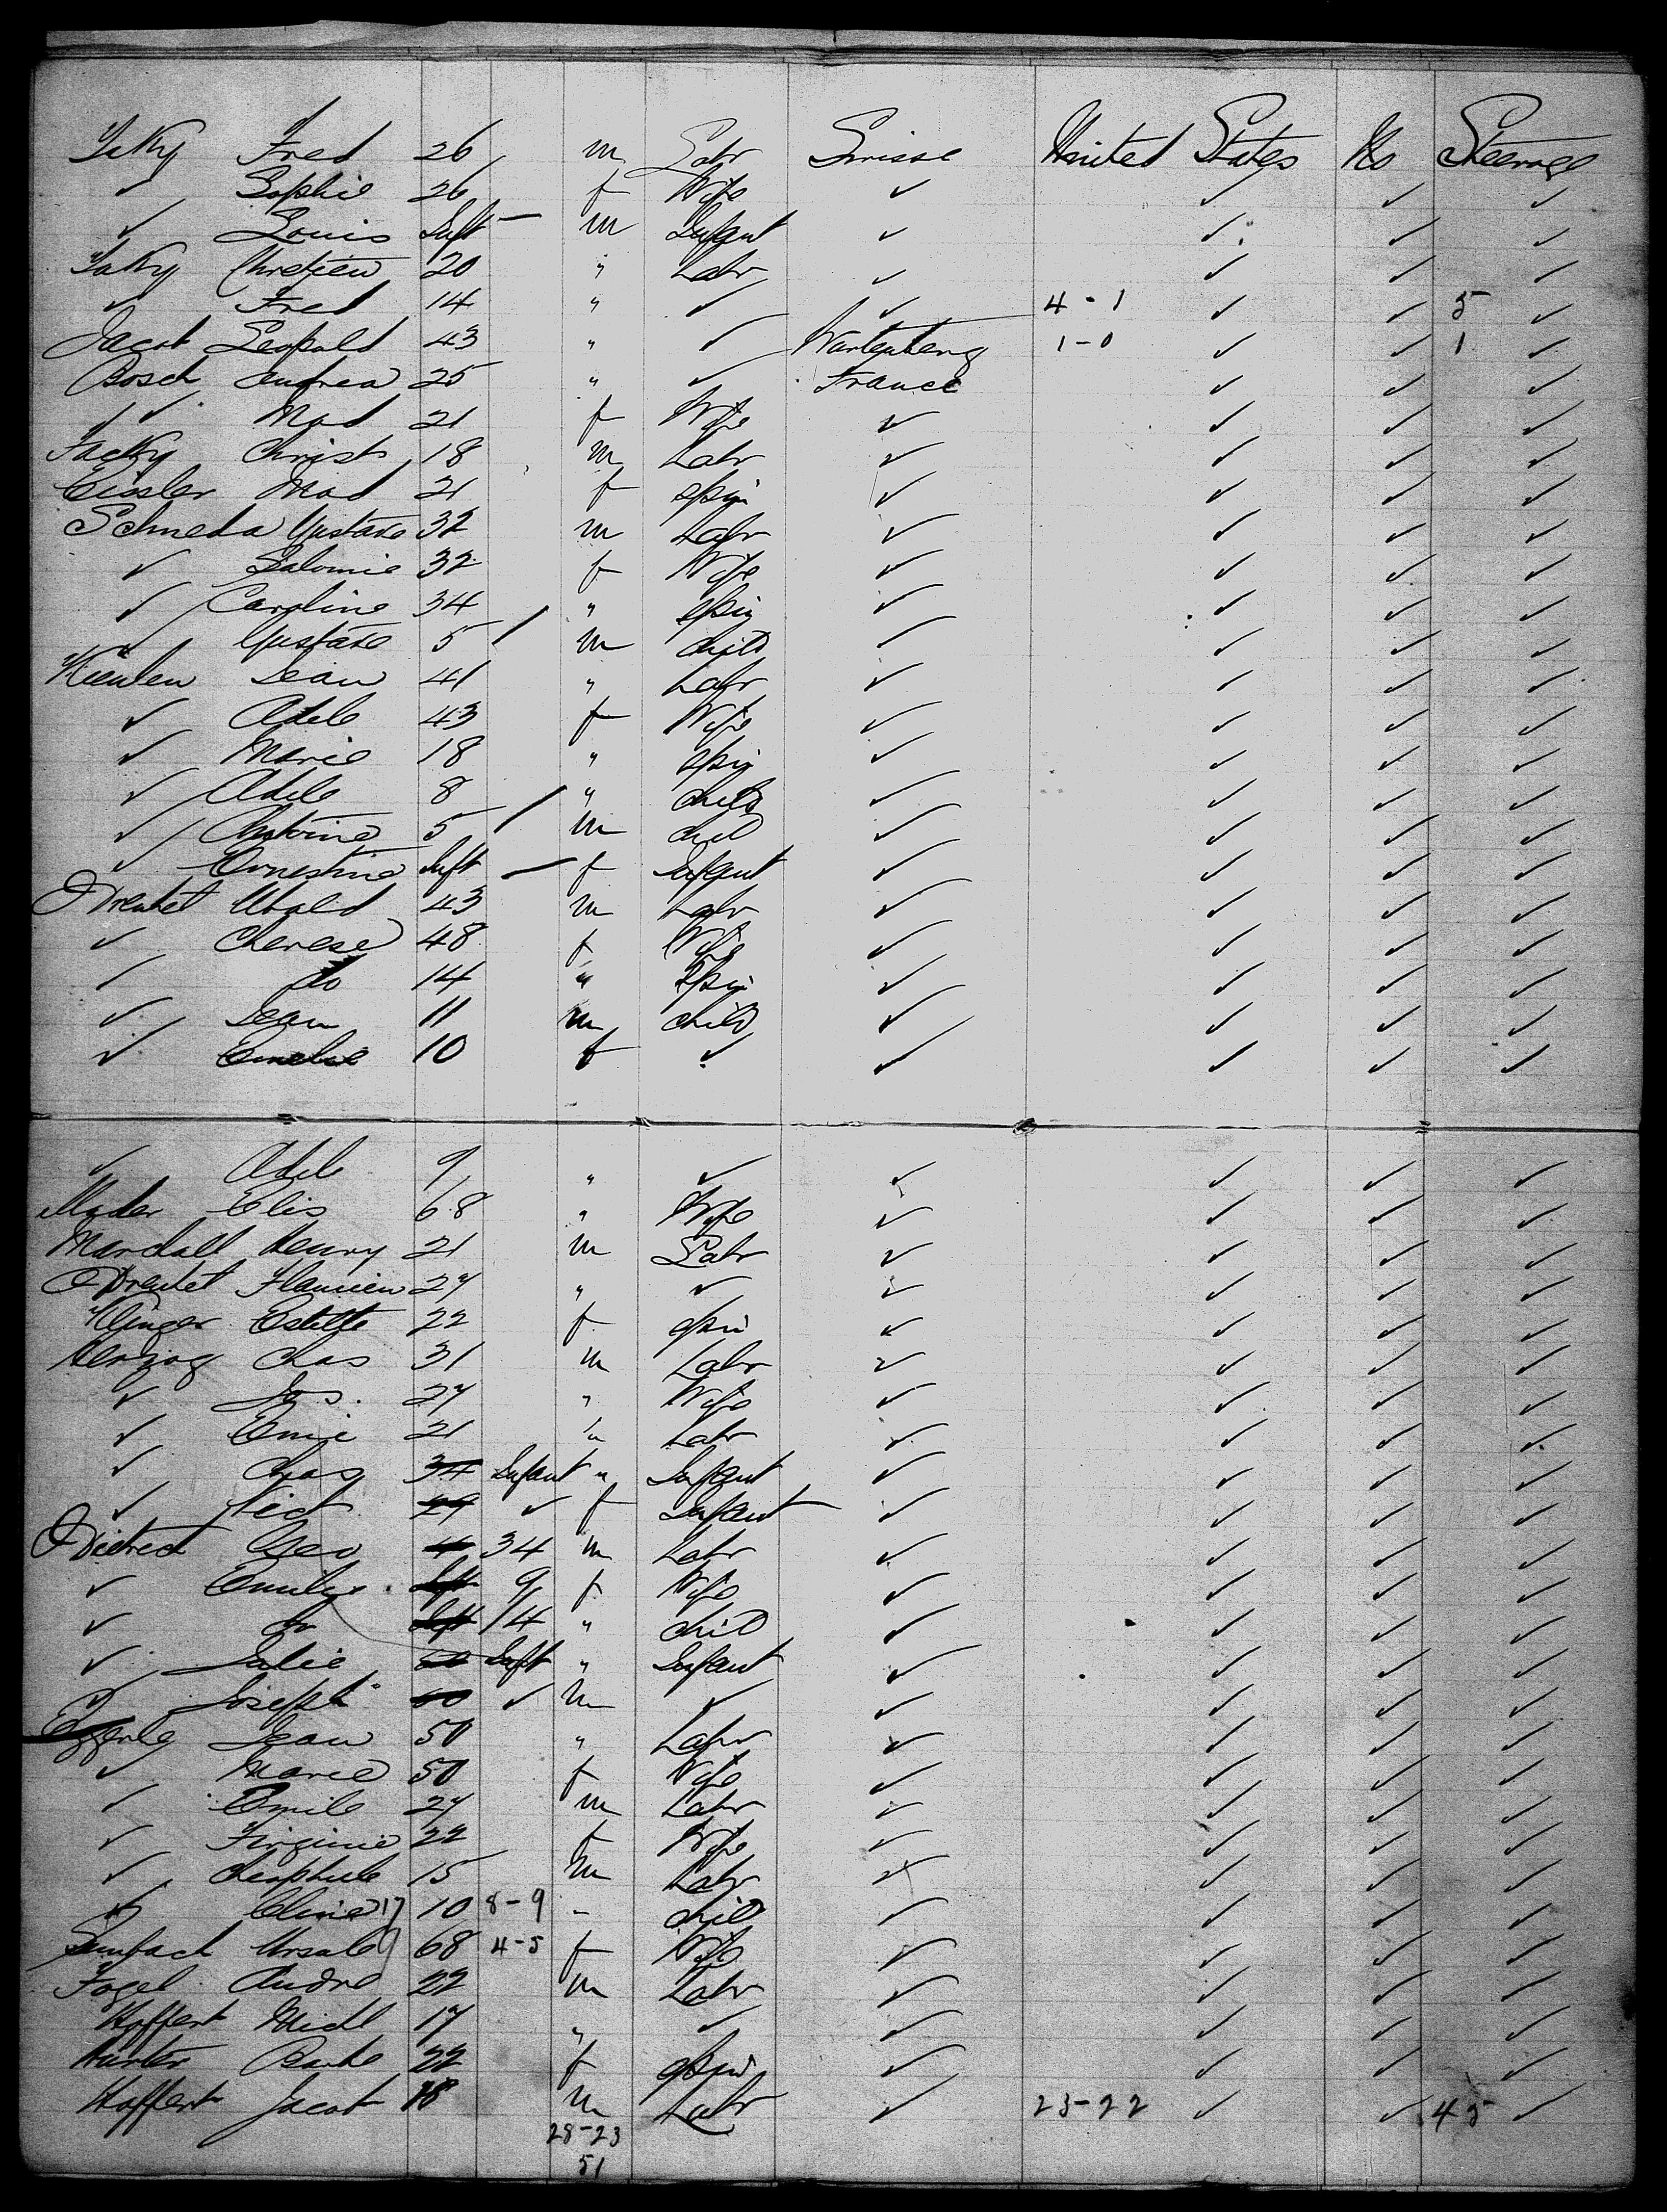 Jakky Fred 26 m Labr Suisse United States No Steerage
✓ Sophie 26 f Wife ✓ ✓ ✓ ✓
✓ Louis Inft — m Infant ✓ ✓ ✓ ✓
Jakky Chretien 20 " Labr ✓ ✓ ✓ ✓
✓ Fred 14 " ✓ ✓ 4-1 ✓ ✓ 5 ✓
Jacob Leopold 43 " ✓ Wurtenberg 1-0 ✓ ✓ 1 ✓
Bosch Andrea 25 " ✓ France ✓ ✓ ✓
✓ Mad 21 f Wife ✓ ✓ ✓ ✓
Jacky Christ 18 m Labr ✓ ✓ ✓ ✓
Eissler Mad 21 f Spin ✓ ✓ ✓ ✓
Schneda Gustave 32 m Labr ✓ ✓ ✓ ✓
✓ Salomie 32 f Wife ✓ ✓ ✓ ✓
✓ Caroline 34 " Spin ✓ ✓ ✓ ✓
✓ Gustave 5 / m Child ✓ ✓ ✓ ✓
Jean 41 " Labr ✓ ✓ ✓ ✓
✓ Adele 43 f Wife ✓ ✓ ✓ ✓
✓ Marie 18 " Spin ✓ ✓ ✓ ✓
✓ Adele 8 " Child ✓ ✓ ✓ ✓
✓ Antoine 5 / m Chil ✓ ✓ ✓ ✓
✓ Ernestine Inft — f Infant ✓ ✓ ✓ ✓
Ubald 43 m Labr ✓ ✓ ✓ ✓
✓ Therese 48 f Wife ✓ ✓ ✓ ✓
✓ do 14 " Spin ✓ ✓ ✓ ✓
✓ Jean 11 m Child ✓ ✓ ✓ ✓
✓ Emelie 10 f ✓ ✓ ✓ ✓ ✓
✓ Adele 9 " ✓ ✓ ✓ ✓ ✓
Mader Elis 68 " Wife ✓ ✓ ✓ ✓
Marchall Henry 21 m Labr ✓ ✓ ✓ ✓
27 " ✓ ✓ ✓ ✓ ✓
Klinger Estelle 22 f Spin ✓ ✓ ✓ ✓
Herzog Chas 31 m Labr ✓ ✓ ✓ ✓
✓ Jos. 27 " Wife ✓ ✓ ✓ ✓
✓ 21 m Labr ✓ ✓ ✓ ✓
✓ Chas 34 Infant " Infant ✓ ✓ ✓ ✓
✓ Vict 29 ✓ f Infant ✓ ✓ ✓ ✓
Dietrech Geo 4 34 m Labr ✓ ✓ ✓ ✓
✓ Emilie Inft 9 f Wife ✓ ✓ ✓ ✓
✓ do Inft 14 " Chil ✓ ✓ ✓ ✓
✓ Julie Inft " Infant ✓ ✓ ✓ ✓
✓ Joseph 50 ✓ m ✓ ✓ ✓ ✓ ✓
Eggerle Jean 50 " Labr ✓ ✓ ✓ ✓
✓ Marie 50 f Wife ✓ ✓ ✓ ✓
✓ Emile 27 m Labr ✓ ✓ ✓ ✓
✓ Virginie 22 f Wife ✓ ✓ ✓ ✓
✓ Theophile 15 m Labr ✓ ✓ ✓ ✓
✓ Cline 17 10 8-9 - Chil ✓ ✓ ✓ ✓
Ursule 9 68 4-5 f Wife ✓ ✓ ✓ ✓
Fogel Andre 22 m Labr ✓ ✓ ✓ ✓
Hoffert Michl 17 " ✓ ✓ ✓ ✓ ✓
Hurter Barbe 22 f Spin ✓ ✓ ✓ ✓
Hoffert Jacob 18 m Labr ✓ 23-22 ✓ ✓ 45 ✓
28-23
51